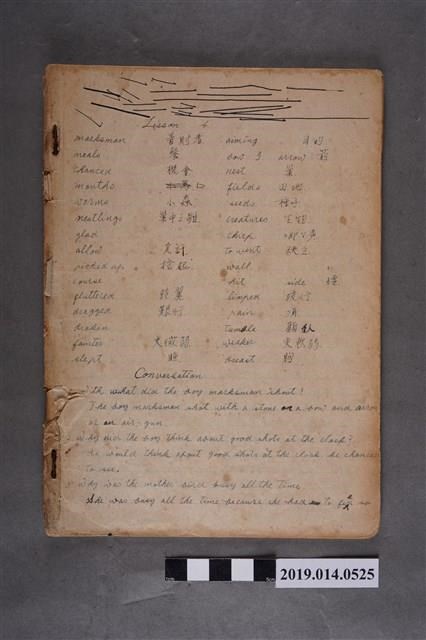 Lesson 4
marksman 善射者 aiming 目的
meals 餐 bow 弓 arrow 箭
chanced 機會 nest 巢
mouths 口 fields 田地
worms 小虫 seeds 種子
nestlings 巢中之雛 creatures 生物
glad chirp
allow 允許 to wait
picked up 拾起 wall
course hit side
fluttered 鼓翼 limped
dragged 艱行 pain 痛
broken tumble
fainter 太微弱 weaker 更軟弱
slept 睡 breast 胸
Conversation
With what did the boy marksman shoot?
The boy marksman shot with a stone or a bow and arrow
or an air-gun
2 Why did the boy think about good shots at the clock?
He would think about good shots at the clock he chanced
to see.
3 Why was the mother bird busy all the time.
She was busy all the time because she had to
2019.014.0525